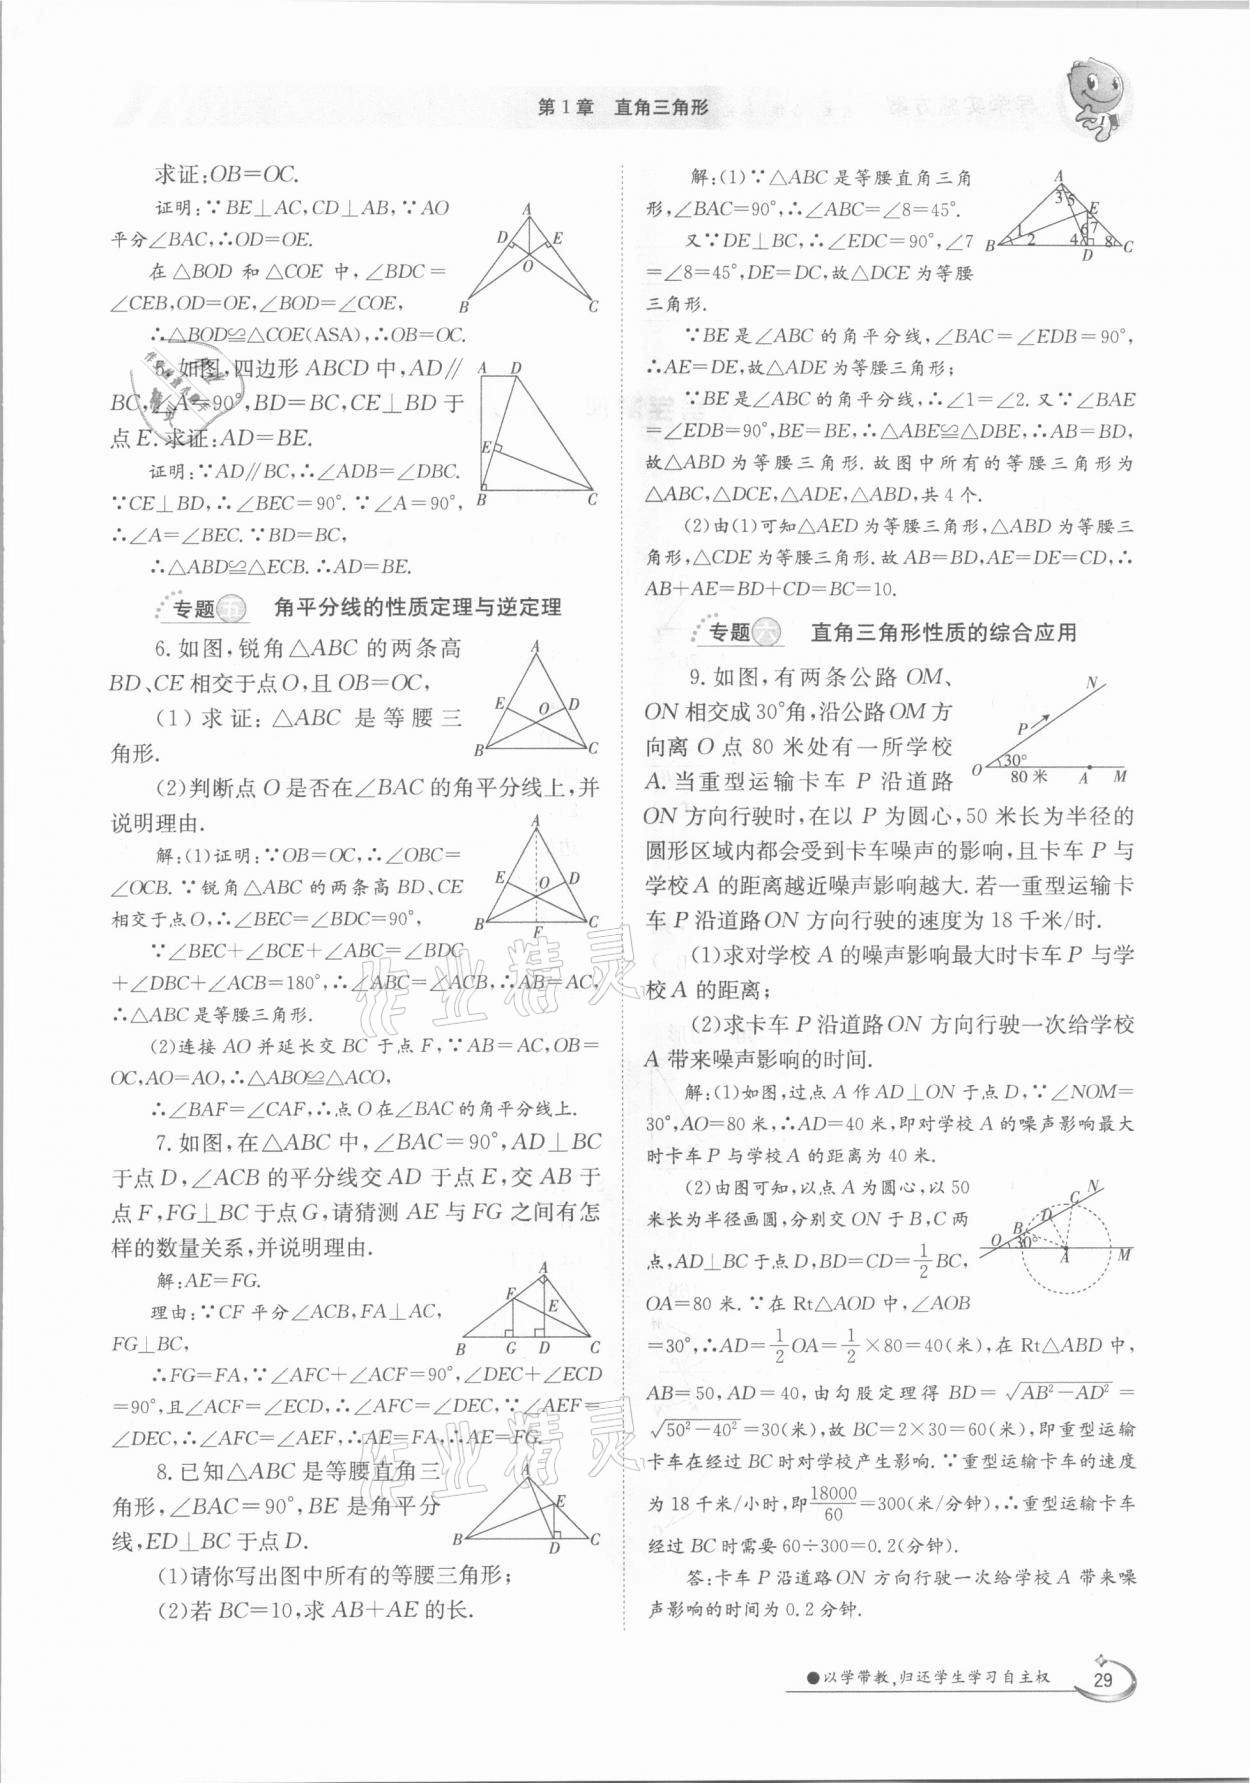 第1章 直角三角形
求证:OB=OC.
证明:∵BE⊥AC,CD⊥AB,∵AO
平分∠BAC,∴OD=OE.
在△BOD 和△COE 中,∠BDC=
∠CEB,OD=OE,∠BOD=∠COE,
∴△BOD≌△COE(ASA),∴OB=OC.
A
D
E
O
B
C
5. 如图,四边形 ABCD 中,AD∥
BC,∠A=90°,BD=BC,CE⊥BD 于
点 E.求证:AD=BE.
证明:∵AD∥BC,∴∠ADB=∠DBC.
∵CE⊥BD,∴∠BEC=90°.∵∠A=90°,
∴∠A=∠BEC.∵BD=BC,
∴△ABD≌△ECB.∴AD=BE.
A D
E
B C
专题五 角平分线的性质定理与逆定理
6. 如图,锐角△ABC 的两条高
BD、CE 相交于点 O,且 OB=OC,
(1) 求证:△ABC 是等腰三
角形.
(2)判断点 O 是否在∠BAC 的角平分线上,并
说明理由.
A
E O D
B C
解:(1)证明:∵OB=OC,∴∠OBC=
∠OCB.∵锐角△ABC 的两条高 BD、CE
相交于点 O,∴∠BEC=∠BDC=90°,
∵∠BEC+∠BCE+∠ABC=∠BDC
+∠DBC+∠ACB=180°,∴∠ABC=∠ACB,∴AB=AC,
∴△ABC 是等腰三角形.
(2)连接 AO 并延长交 BC 于点 F,∵AB=AC,OB=
OC,AO=AO,∴△ABO≌△ACO,
∴∠BAF=∠CAF,∴点 O 在∠BAC 的角平分线上.
A
E O D
B F C
7. 如图,在△ABC 中,∠BAC=90°,AD⊥BC
于点 D,∠ACB 的平分线交 AD 于点 E,交 AB 于
点 F,FG⊥BC 于点 G,请猜测 AE 与 FG 之间有怎
样的数量关系,并说明理由.
解:AE=FG.
理由:∵CF 平分∠ACB,FA⊥AC,
FG⊥BC,
∴FG=FA,∵∠AFC+∠ACF=90°,∠DEC+∠ECD
=90°,且∠ACF=∠ECD,∴∠AFC=∠DEC,∵∠AEF=
∠DEC,∴∠AFC=∠AEF,∴AE=FA,∴AE=FG.
A
F E
B G D C
8. 已知△ABC 是等腰直角三
角形,∠BAC=90°,BE 是角平分
线,ED⊥BC 于点 D.
(1)请你写出图中所有的等腰三角形;
(2)若 BC=10,求 AB+AE 的长.
A
E
B D C
解:(1)∵△ABC 是等腰直角三角
形,∠BAC=90°,∴∠ABC=∠8=45°.
又∵DE⊥BC,∴∠EDC=90°,∠7
=∠8=45°,DE=DC,故△DCE 为等腰
三角形.
A
3 5
E
6 7
B 1 2 4 8 C
D
∵BE 是∠ABC 的角平分线,∠BAC=∠EDB=90°,
∴AE=DE,故△ADE 为等腰三角形;
∵BE 是∠ABC 的角平分线,∴∠1=∠2.又∵∠BAE
=∠EDB=90°,BE=BE,∴△ABE≌△DBE,∴AB=BD,
故△ABD 为等腰三角形.故图中所有的等腰三角形为
△ABC,△DCE,△ADE,△ABD,共 4 个.
(2)由(1)可知△AED 为等腰三角形,△ABD 为等腰三
角形,△CDE 为等腰三角形.故 AB=BD,AE=DE=CD,∴
AB+AE=BD+CD=BC=10.
专题六 直角三角形性质的综合应用
9. 如图,有两条公路 OM、
ON 相交成 30°角,沿公路 OM 方
向离 O 点 80 米处有一所学校
A.当重型运输卡车 P 沿道路
ON 方向行驶时,在以 P 为圆心,50 米长为半径的
圆形区域内都会受到卡车噪声的影响,且卡车 P 与
学校 A 的距离越近噪声影响越大.若一重型运输卡
车 P 沿道路 ON 方向行驶的速度为 18 千米/时.
N
P
30°
O 80 米 A M
(1)求对学校 A 的噪声影响最大时卡车 P 与学
校 A 的距离;
(2)求卡车 P 沿道路 ON 方向行驶一次给学校
A 带来噪声影响的时间.
解:(1)如图,过点 A 作 AD⊥ON 于点 D,∵∠NOM=
30°,AO=80 米,∴AD=40 米,即对学校 A 的噪声影响最大
时卡车 P 与学校 A 的距离为 40 米.
(2)由图可知,以点 A 为圆心,以 50
米长为半径画圆,分别交 ON 于 B,C 两
点,AD⊥BC 于点 D,BD=CD=1/2BC,
OA=80 米.∵在 Rt△AOD 中,∠AOB
=30°,∴AD=1/2OA=1/2×80=40(米),在 Rt△ABD 中,
AB=50,AD=40,由勾股定理得 BD=√(AB²-AD²)=
√(50²-40²)=30(米),故 BC=2×30=60(米),即重型运输
卡车在经过 BC 时对学校产生影响.∵重型运输卡车的速度
为 18 千米/小时,即18000/60=300(米/分钟),∴重型运输卡车
经过 BC 时需要 60÷300=0.2(分钟).
答:卡车 P 沿道路 ON 方向行驶一次给学校 A 带来噪
声影响的时间为 0.2 分钟.
C N
D
B
O 30°
A M
作业精灵
作业精灵
●以学带教,归还学生学习自主权
29